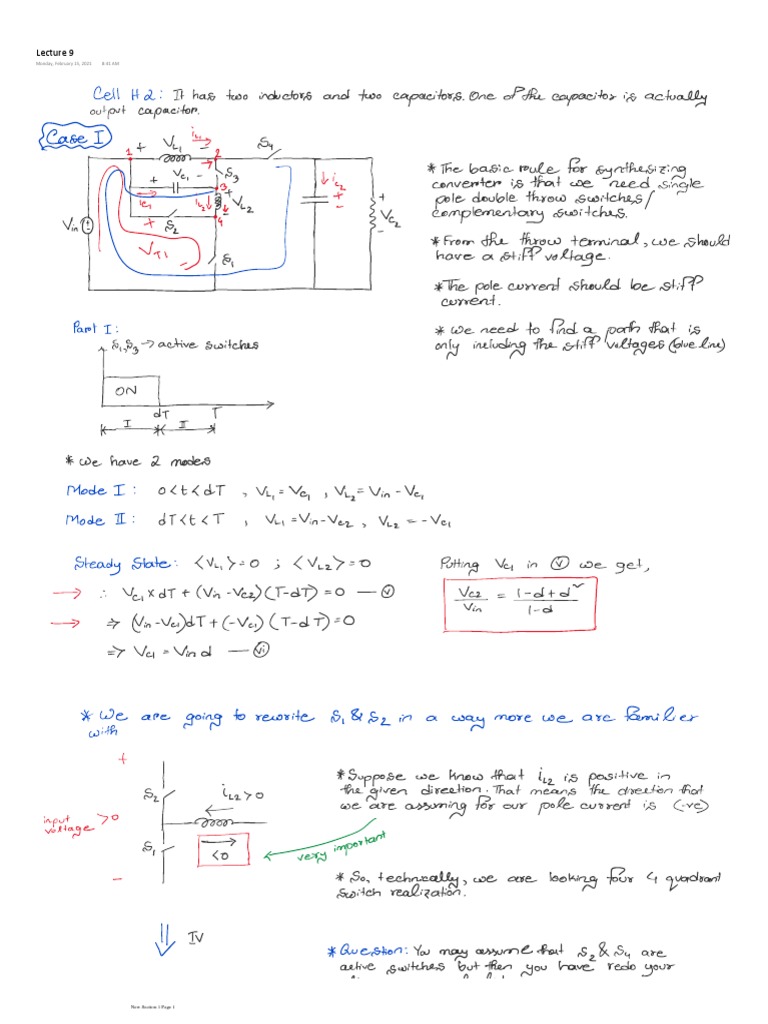 Lecture 9
Monday, February 15, 2021 8:41 AM
Cell H2: It has two inductors and two capacitors. One of the capacitor is actually
output capacitor.
Case I
+ VL1 - iL1 S4
1 2
+ VC1 - S3
3
iC1 iL2 + VL2 -
4
+ S2 -
Vin
VT1
S1
iC2 + -
+ VC2 -
* The basic rule for synthesizing
converter is that we need single
pole double throw switches/
complementary switches.
* From the throw terminal, we should
have a stiff voltage.
* The pole current should be stiff
current.
* we need to find a path that is
only including the stiff voltages (blue line)
Part I:
S1,S3 → active switches
ON
dT T
I II
* we have 2 modes
Mode I: 0<t<dT , VL1 = VC1 , VL2 = Vin - VC1
Mode II: dT<t<T , VL1 = Vin - VC2 , VL2 = -VC1
Steady State: <VL1> = 0 ; <VL2> = 0
→ ∴ VC1 x dT + (Vin - VC2)(T-dT) = 0 — (v)
→ ⇒ (Vin - VC1)dT + (-VC1) (T-dT) = 0
⇒ VC1 = Vin d — (vi)
Putting VC1 in (v) we get,
VC2/Vin = (1-d+d²)/(1-d)
* We are going to rewrite S1 & S2 in a way more we are familier
with
+
S2
iL2>0
input
voltage >0
S1
<0
very important
-
IV
* Suppose we know that iL2 is positive in
the given direction. That means the direction that
we are assuming for our pole current is (-ve)
* So, technically, we are looking four 4 quadrant
switch realization.
* Question: You may assume that S2 & S4 are
active switches but then you have redo your
New Section 1 Page 1